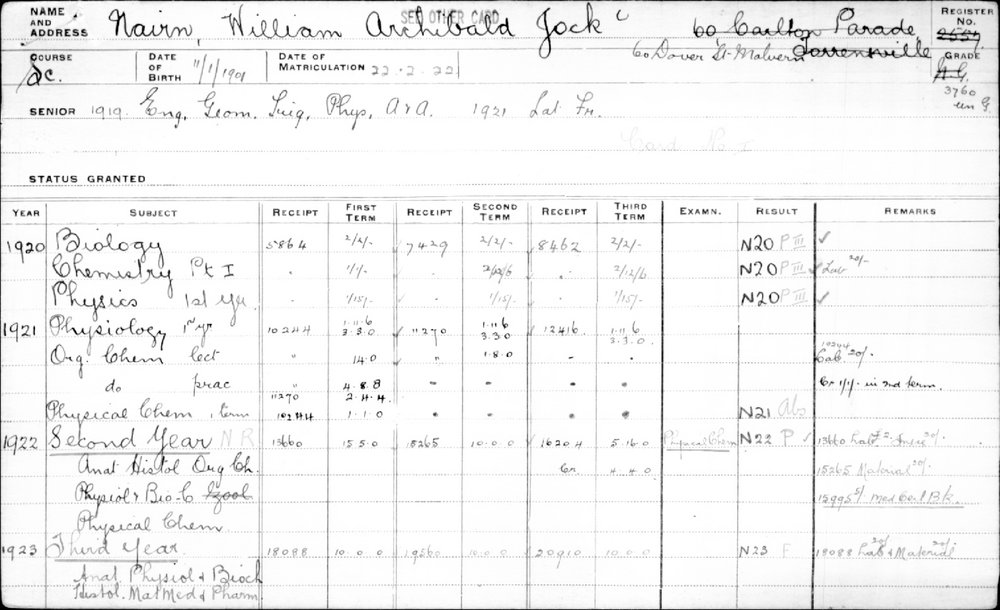 SEE OTHER CARD
NAME AND ADDRESS Nairn, William Archibald Jock 60 Carlton Parade, Torrensville
60 Dover St. Malvern
REGISTER No. 2657
COURSE Sc. DATE OF BIRTH 11/1/1901 DATE OF MATRICULATION 22.2.22 GRADE
3760
SENIOR 1919. Eng, Geom. Trig, Phys, A & A. 1921 Lat Fr.
Card No I
STATUS GRANTED
YEAR SUBJECT RECEIPT FIRST TERM RECEIPT SECOND TERM RECEIPT THIRD TERM EXAMN. RESULT REMARKS
1920 Biology 5864 2/2/- 7429 2/2/- 8462 2/2/- N20 P III ✓
Chemistry Pt I " 1/1/- 2/12/6 2/12/6 N20 P III ✓ Lab 20/-
Physics 1st yr " 1/15/- 1/15/- 1/15/- N20 P III ✓
1921 Physiology 1st yr 10244 1.11.6 3.3.0 ✓ 11270 1.11.6 3.3.0 ✓ 12416 1.11.6 3.3.0
Org. Chem Lect " 14.0 ✓ " 1.8.0 " " 10244 Lab 20/-
do prac " 4.8.8 " " " " Cr 1/1/- in 2nd term.
11270 2.4.4
Physical Chem 1 term 10244 1.1.0 " " " " N21 Abs
1922 Second Year NR 13660 15.5.0 ✓ 15265 10.0.0 ✓ 16204 5.16.0 Physical Chem N22 P ✓ 13660 Lab £2. 20/-
Anat Histol Org Ch. Cr 4.4.0 15265 Material 20/-
Physiol & Bio-C Zool 15995 5/ Med Cert Bk.
Physical Chem
1923 Third Year 18088 10.0.0 19560 10.0.0 20910 10.0.0 N23 F 18088 Lab & Material 20/-
Anat Physiol & Bioch
Histol. Mat Med & Pharm